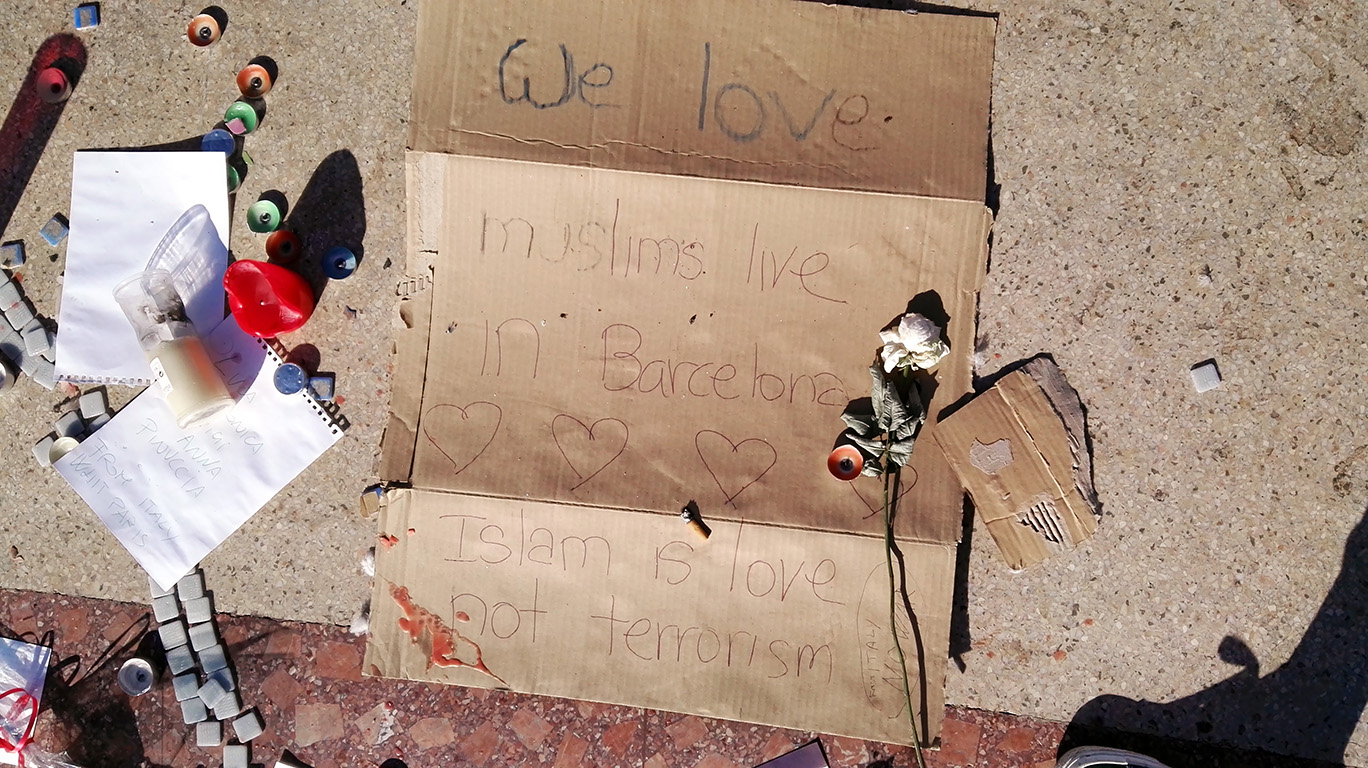 We love
muslims live
in Barcelona
Islam is love
not terrorism
ANNA
PUNCTA
FROM ITALY
ITALY